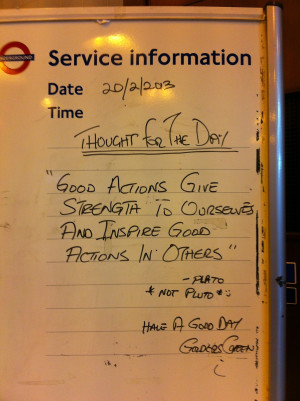 UNDERGROUND
Service information
Date 20/2/2013
Time
THOUGHT FOR THE DAY
"GOOD ACTIONS GIVE
STRENGTH TO OURSELVES
AND INSPIRE GOOD
ACTIONS IN OTHERS"
- PLATO
* NOT PLUTO *
HAVE A GOOD DAY
GOLDERS GREEN